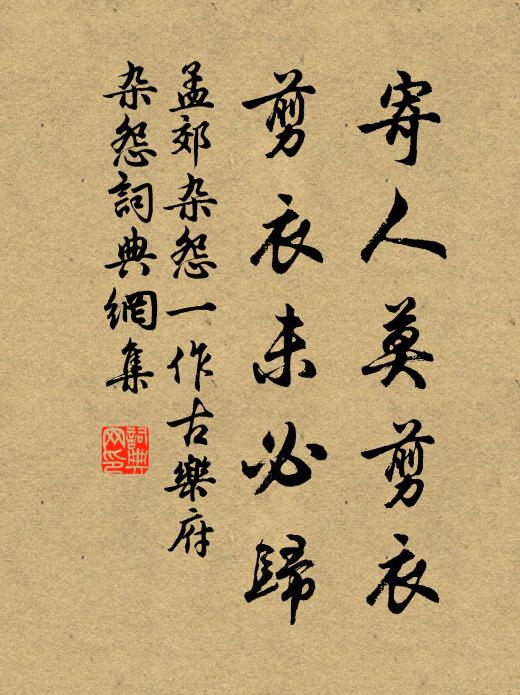 寄人莫剪衣
剪衣未必歸
孟郊杂怨一作古樂府
杂怨詞典網集
詞典网印